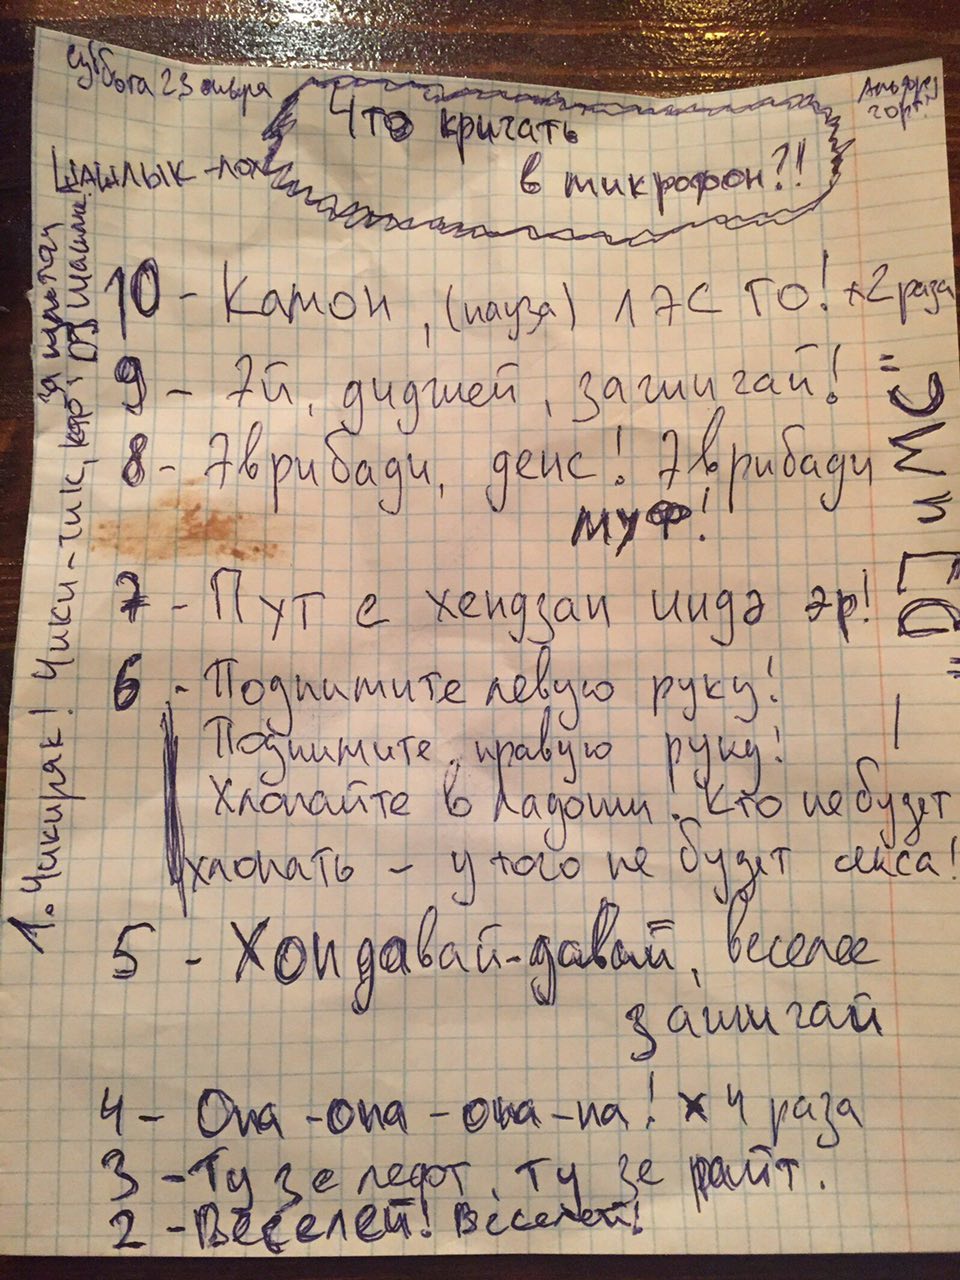 суббота 23 января
Что кричать
в микрофон?!!
ШАШЛЫК-поп
10 - Камон, (пауза) 1 7С ТО! x2 раза
9 - 7й, диджей, зажигай!
8 - 7врибади, денс! 7врибади
муф!
7 - Пут ё хендзап индэ эр!
6 - Поднимите левую руку!
Поднимите правую руку!
Хлопайте в ладоши! Кто не будет
хлопать - у того не будет секса!
5 - Хоп давай-давай, веселее
зажигай
4 - Опа-опа-опа-па! x 4 раза
3 - Ту зе лефт, ту зе райт.
2 - Веселей! Веселей!
1. Чикиряк! Чики-чик,
за пультом
DJ Шашлык
"DJ и МС"